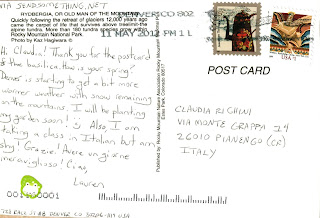 VIA SENDSOMETHING.NET
RYDBERGIA, OR OLD MAN OF THE MOUNTAIN
Quickly following the retreat of glaciers 12,000 years ago
came the carpet of life that survives above treeline: the
alpine tundra. More than 180 tundra species grow within
Rocky Mountain National Park.
Photo by Kaz Hagiwara ©
DENVER CO 802
11 MAY 2012 PM 11 L
Hi Claudia! Thank you for the postcard
of the basilica. How is your spring?
Denver is starting to get a bit more
warmer weather with snow remaining
in the mountains. I will be planting
my garden soon! Also, I am
taking a class in Italian but am
shy! Grazie! Avere un giorno
meraviglioso! Ciao,
Lauren
Published by Rocky Mountain Nature Association
Rocky Mountain National Park
Estes Park, Colorado 80517
POST CARD
USA
CLAUDIA RICHINI
VIA MONTE GRAPPA 14
26010 PIANENGO (CR)
ITALY